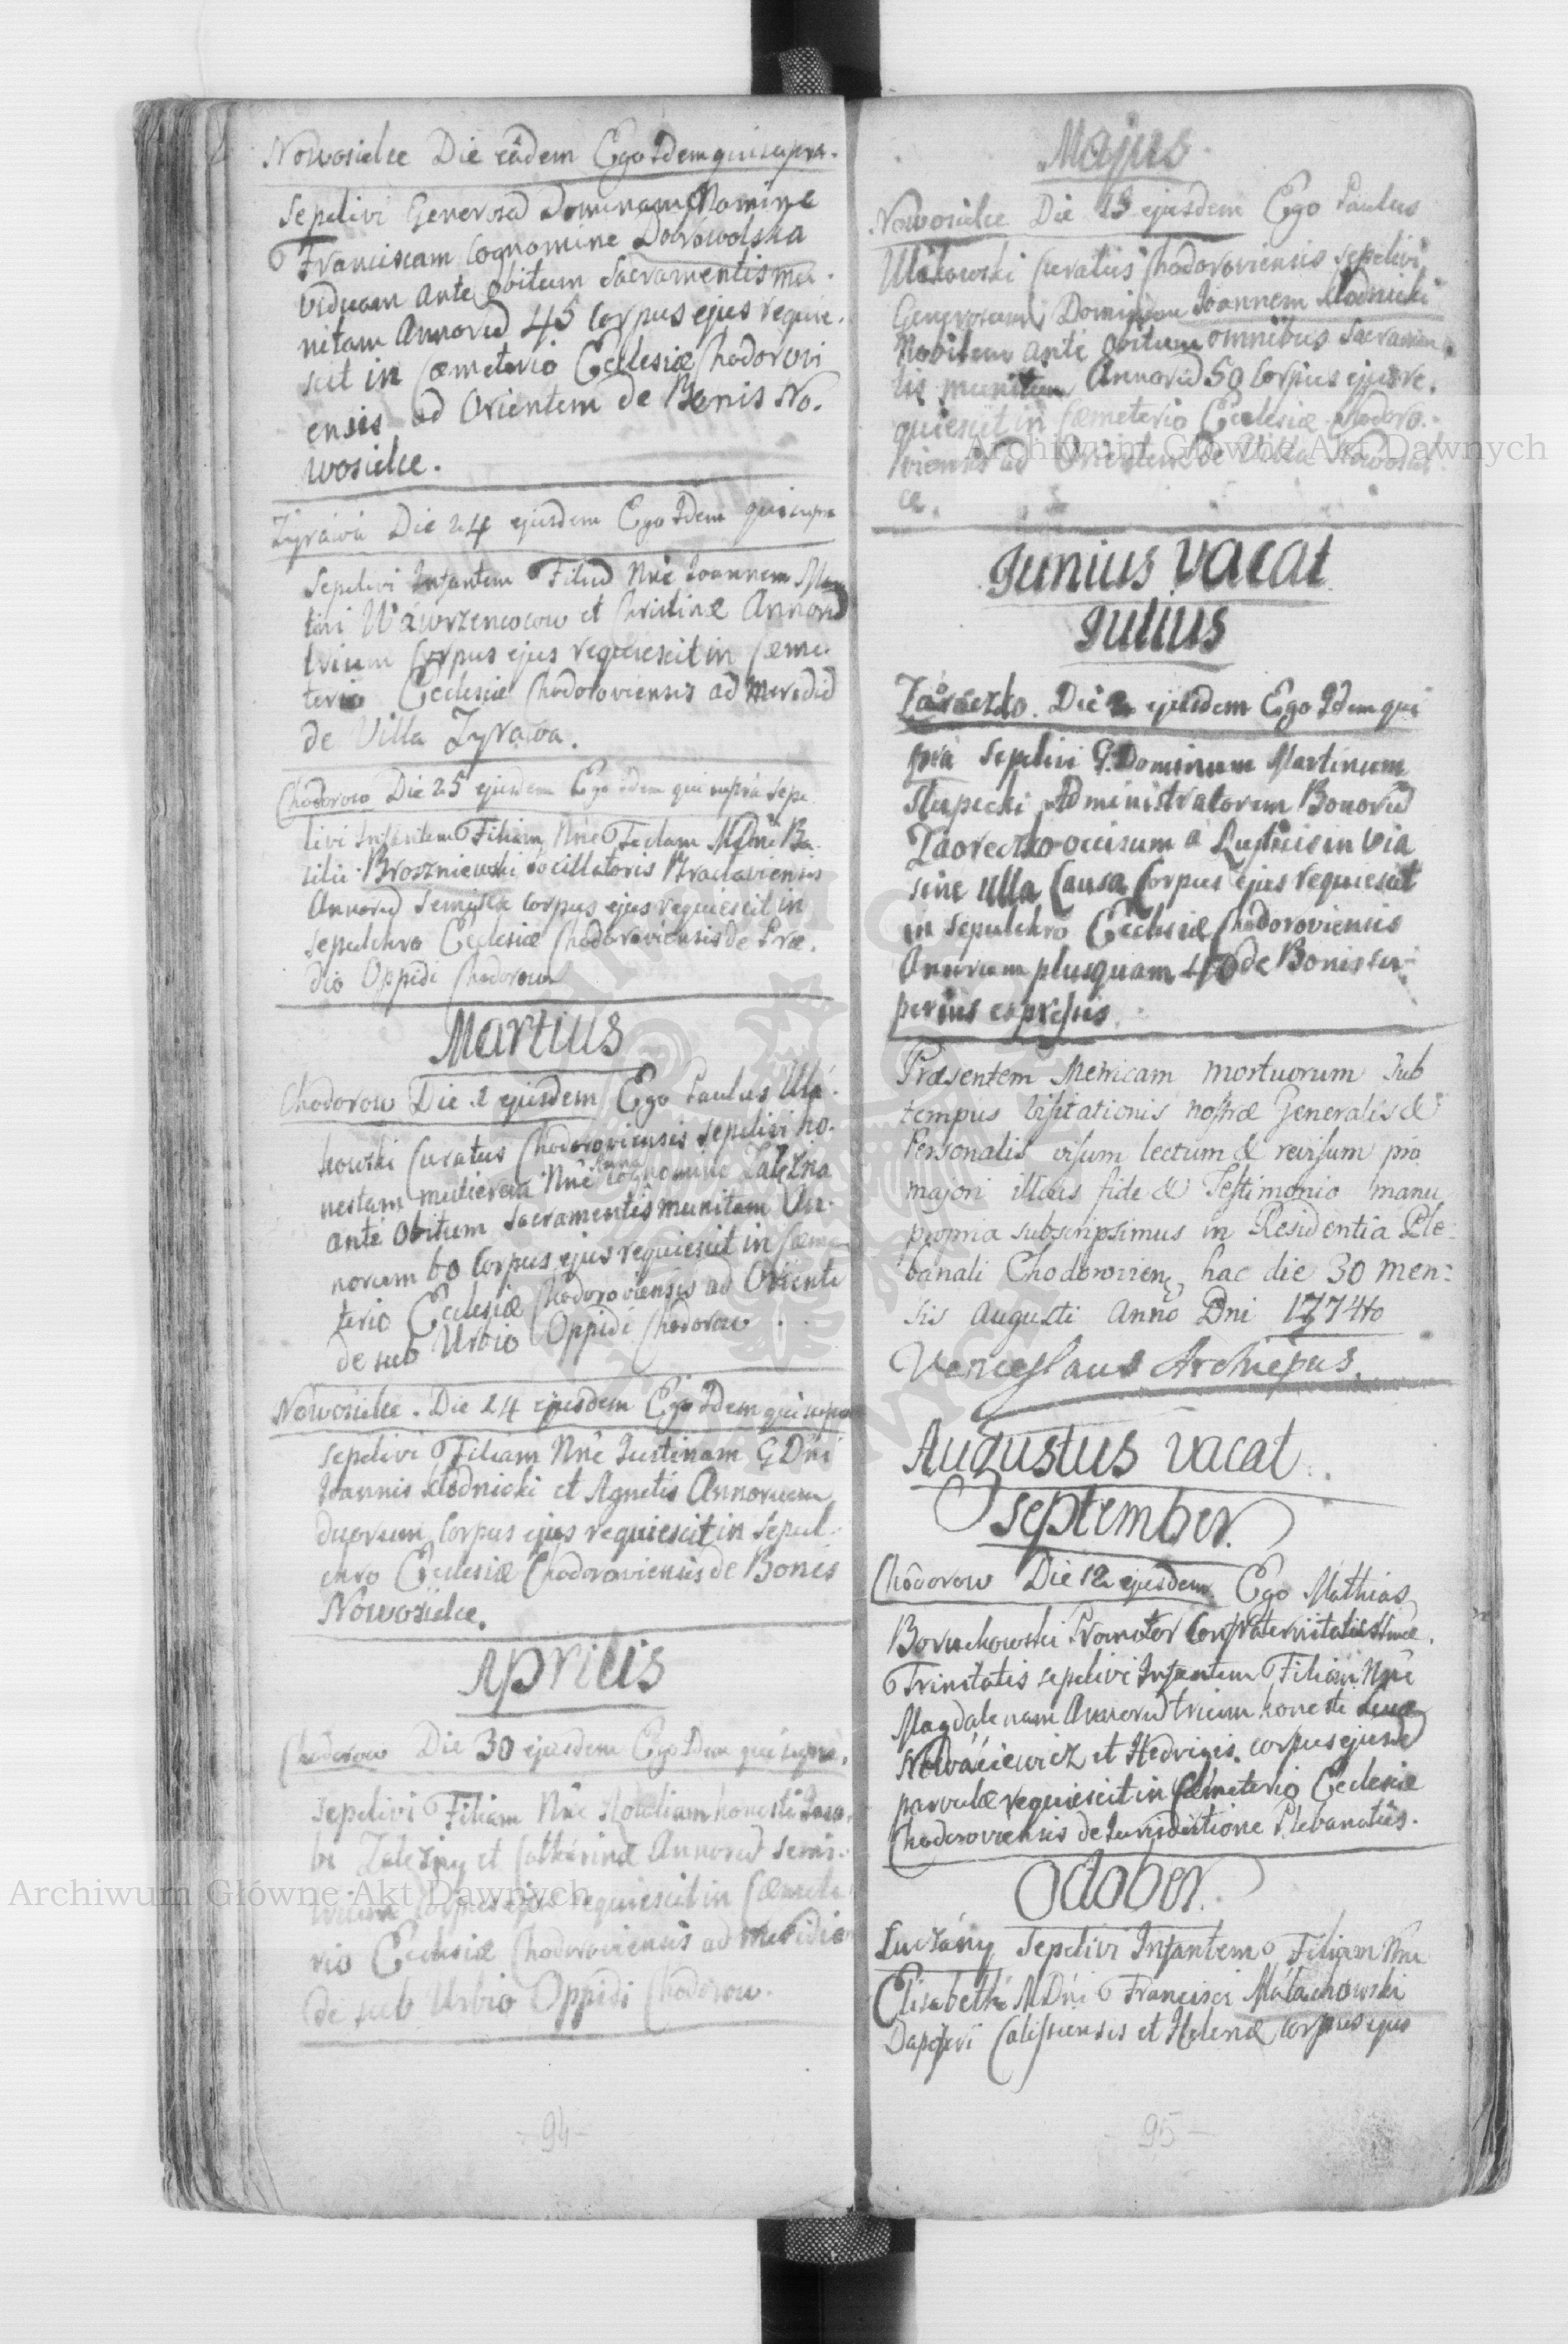 Nowosielce Die eâdem Ego Idem qui supra.
Sepelivi Generosã Dominam Nomine
Franciscam Cognomine Dobrowolska
viduam ante obitum Sacramentis mu-
nitam Annorũ 45 Corpus ejus requie-
scit in Cæmeterio Ecclesiæ Chodorovi
ensis ad Orientem de Bonis No-
wosielce.
Zyrawa Die 24 ejusdem Ego Idem qui supra
Sepelivi Infantem Filiũ Nñe Joannem
Wawrzencow et Christinæ Annorũ
trium Corpus ejus requiescit in Cæme-
terio Ecclesiæ Chodoroviensis ad Meridiẽ
de Villa Zyrawa.
Chodorow Die 25 ejusdem Ego Idem qui supra Sepe
livi Infantem Filiam Nñe Teclam MDni Ba-
silii Broszniewski Bracłaviensis
Annorũ Semis Corpus ejus requiescit in
Sepulchro Ecclesiæ Chodoroviensis de Præ-
dio Oppidi Chodorow
Martius
Chodorow Die 2 ejusdem Ego Paulus Uli-
kowski Curatus Chodoroviensis Sepelivi ho-
nestam mulierem Nñe Cognomine Zalezna
ante Obitum Sacramentis munitam An-
norum 60 Corpus ejus requiescit in Cæme-
terio Ecclesiæ Chodoroviensis ad Orientẽ
de sub Urbio Oppidi Chodorow
Nowosielce. Die 24 ejusdem Ego Idem qui supra
Sepelivi Filiam Nñe Justinam G Dñi
Joannis Kłodnicki et Agnetis Annorum
duorum Corpus ejus requiescit in Sepul-
chro Ecclesiæ Chodoroviensis de Bonis
Nowosielce.
Aprilis
Chodorow Die 30 ejusdem Ego Idem qui supra.
Sepelivi Filiam Nñe honesti Jaco-
bi Zalezny et Catharinæ Annorũ Semi-
Corpus ejus requiescit in Cæmete-
rio Ecclesiæ Chodoroviensis ad Meridiẽ
de sub Urbio Oppidi Chodorow.
94
Majus
Nowosielce Die 23 ejusdem Ego Paulus
Ulikowski Curatus Chodoroviensis Sepelivi
Generosum Dominum Joannem Kłodnicki
Nobilem ante obitum omnibus Sacramen-
tis munitum Annorũ 50 Corpus ejus re-
quiescit in Cæmeterio Ecclesiæ Chodoro-
viensis ad Orientem de Villa Nowosiel
ce.
Junius vacat
Julius
Zaoreczko. Die 2 ejusdem Ego Idem qui
pra Sepelivi G. Dominum Martinum
Słupecki Administratorem Bonorũ
Zaoreczko occisum a Rusticis in via
sine ulla Causa Corpus ejus requiescit
in Sepulchro Ecclesiæ Chodoroviensis
Annorum plusquam 40 de Bonis su-
perius expressis
Præsentem Metricam mortuorum sub
tempus Visitationis nostræ Generalis &
Personalis visum lectum & revisum pro
majori illius fide & Testimonio manu
propria subscripsimus in Residentia Ple-
banali Chodorovien, hac die 30 men-
sis Augusti Anno Dni 1774to
Venceslaus Archiepus.
Augustus vacat
September.
Chodorow Die 12 ejusdem Ego Mathias
Boruchowski Promotor Confraternitatis SSmæ
Trinitatis sepelivi Infantem Filiam Nñe
Magdalenam Annorũ trium honesti Lucæ
Nowaciewicz et Hedvigis. corpus ejusdẽ
parvulæ requiescit in Cæmeterio Ecclesiæ
Chodoroviensis de Jurisdictione Plebanatûs.
October.
Luczany Sepelivi Infantem Filiam Nñe
Elisabethã MDñi Francisci Małachowski
Dapiferi Calissiensis et Helenæ corpus ejus
95
Archiwum Główne Akt Dawnych
Archiwum Główne Akt Dawnych